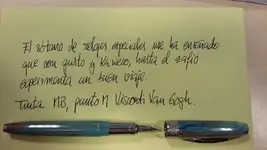 El sótano de relojes especiales me ha enseñado
que con gusto y Kaweco, hasta el zafio
experimenta un buen viaje.
Tinta MB, punto M Visconti Van Gogh.